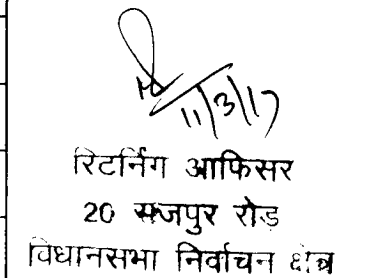 11/3/17
रिटर्निंग आफिसर
20 राजपुर रोड़
विधानसभा निर्वाचन क्षेत्र